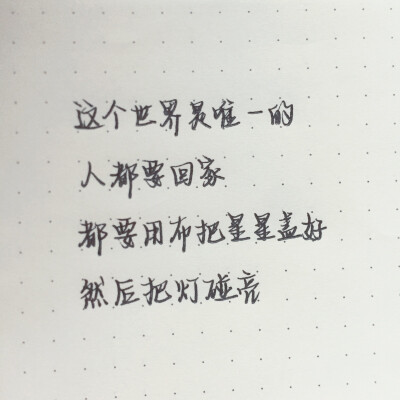 这个世界是唯一的
人都要回家
都要用布把星星盖好
然后把灯碰亮